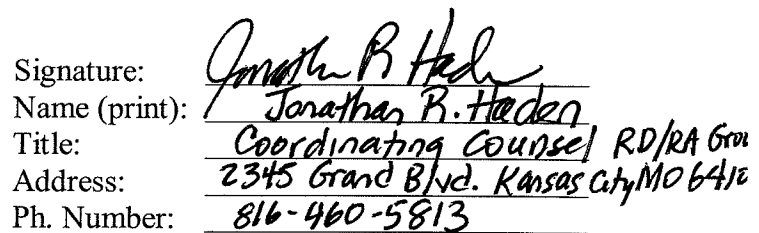 Signature: Jonathan R Haden
Name (print): Jonathan R. Haden
Title: Coordinating Counsel RD/RA Grou
Address: 2345 Grand Blvd. Kansas City MO 6410
Ph. Number: 816-460-5813